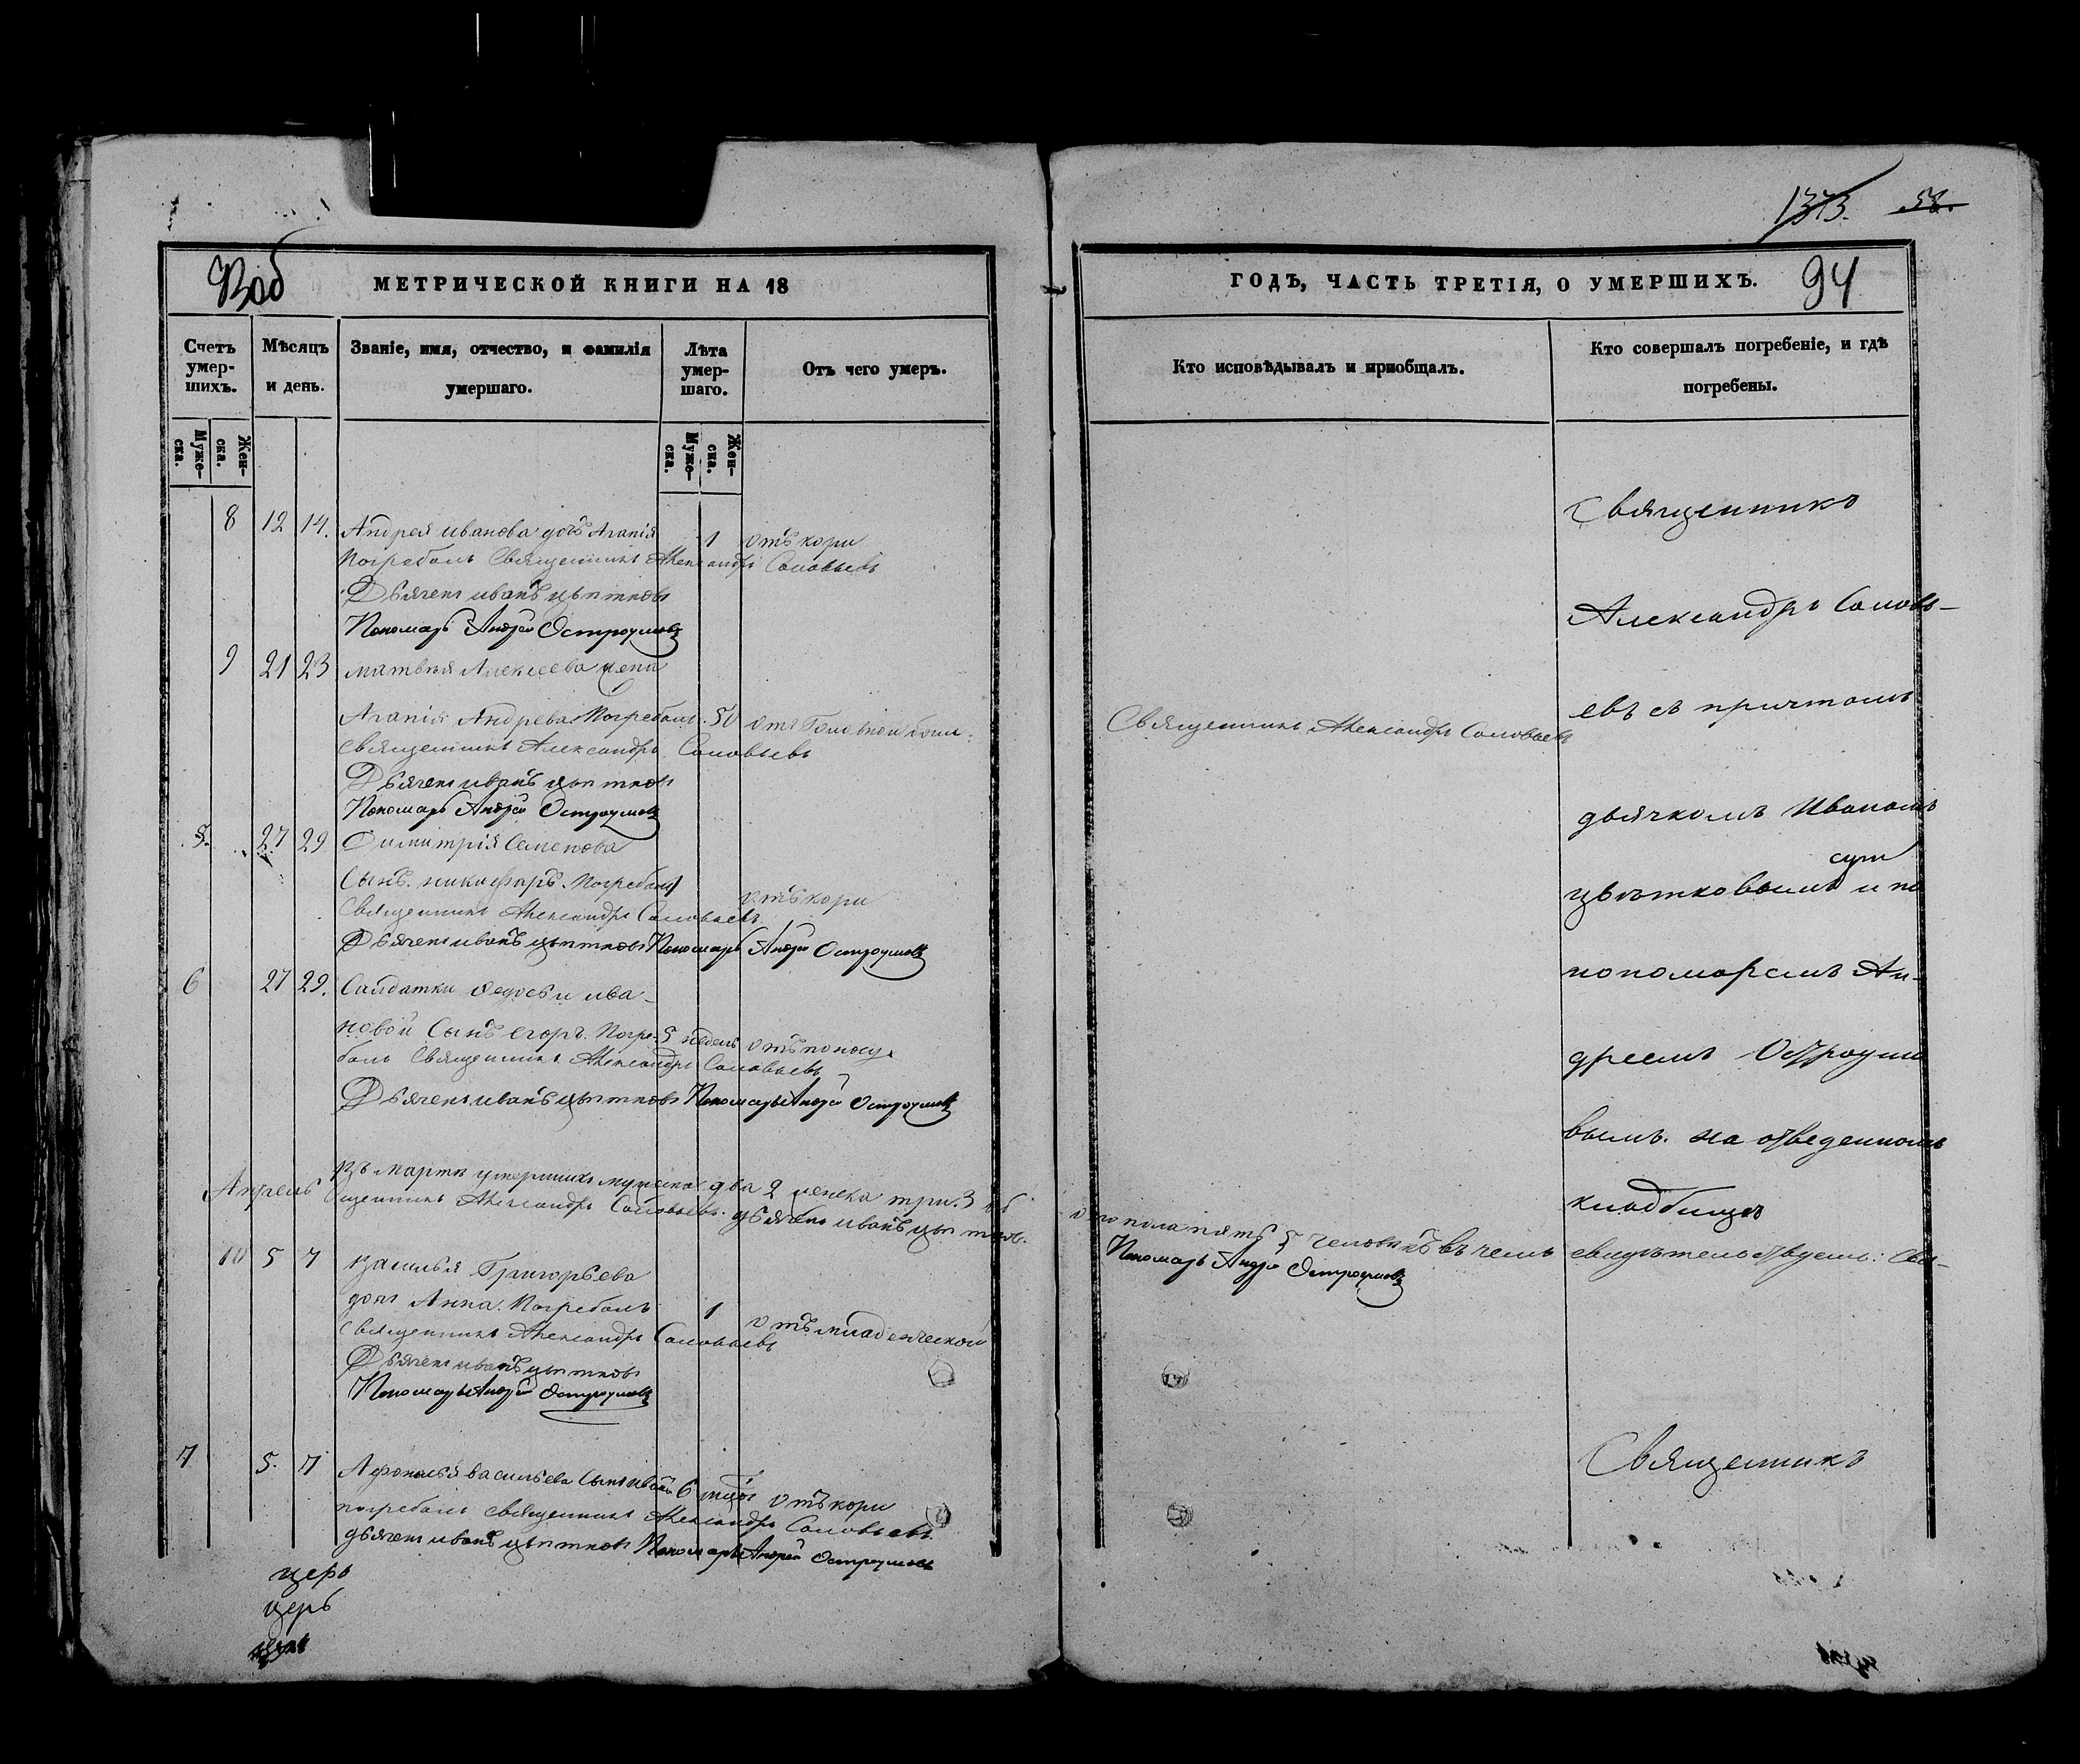 1373. 58.
Воб
МЕТРИЧЕСКОЙ КНИГИ НА 18
ГОДЪ, ЧАСТЬ ТРЕТІЯ, О УМЕРШИХЪ.
94
Счетъ умер-шихъ.
Мѣсяцъ и день.
Званіе, имя, отчество, и фамилія умершаго.
Лѣта умер-шаго.
Отъ чего умеръ.
Кто исповѣдывалъ и пріобщалъ.
Кто совершалъ погребеніе, и гдѣ погребены.
Муже-ска.
Жен-ска.
Муже-ска.
Жен-ска.
8 12 14. Андрея иванова дочь Агапія 1 отъ кори
Погребалъ Священникъ Александръ Соловьевъ
Дьячекъ иванъ цвѣтковъ
Пономарь Андрей Остроумовъ
9 21 23 матвѣя Алексеева жена
Агапія Андрева Погребалъ 50 отъ Головной боли.
священникъ Александръ Соловьевъ
Дьячекъ иванъ цвѣтковъ
Пономарь Андрей Остроумовъ
5. 27 29 Димитрія Семенова
Сынъ никифоръ. Погребалъ отъ кори
Священникъ Александръ Соловьевъ
Дьячекъ иванъ цвѣтковъ Пономарь Андрей Остроумовъ
6 27 29. Салдатки Федосьи ива-
новой Сынъ егоръ. Погре- 5 недель отъ поносу
балъ Священникъ Александръ Соловьевъ
Дьячекъ иванъ цвѣтковъ Пономарь Андрей Остроумовъ
въ мартѣ умершихъ мужска два 2 женска три. 3 об
ого пола пять 5 человѣкъ въ чемъ свидѣтельствуемъ: Свя-
щенникъ Александръ Соловьевъ. дьячекъ иванъ цвѣтковъ.
Пономарь Андрей Остроумовъ
Апрель
10 5 7 василья Григорьева
дочь Анна. Погребалъ 1 отъ младенческой
священникъ Александръ Соловьевъ
Дьячекъ иванъ цвѣтковъ
Пономарь Андрей Остроумовъ
7 5. 7 Афонасья васильева Сынъ иванъ 6 отъ кори
погребалъ священникъ Александръ Соловьевъ.
дьячекъ иванъ цвѣтковъ Пономарь Андрей Остроумовъ
церь
церь
Священникъ Александръ Соловьевъ
Священникъ
Александръ Соловь-
евъ съ причтомъ
дьячкомъ Иваномъ
цвѣтковымъ и по
пономаремъ Ан-
дреемъ Остроумо
вымъ. на отведенномъ
кладбище
Священникъ